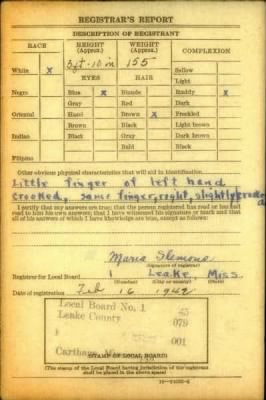 REGISTRAR'S REPORT
DESCRIPTION OF REGISTRANT
RACE HEIGHT (Approx.) WEIGHT (Approx.) COMPLEXION
5ft-10in 155
White X Sallow
EYES HAIR Light
Negro Blue X Blonde Ruddy X
Gray Red Dark
Oriental Hazel Brown X Freckled
Brown Black Light brown
Indian Black Gray Dark brown
Bald Black
Filipino
Other obvious physical characteristics that will aid in identification
Little finger of left hand
crooked, same finger, right, slightly
I certify that my answers are true; that the person registered has read or has had
read to him his own answers; that I have witnessed his signature or mark and that
all of his answers of which I have knowledge are true, except as follows:
Maria
(Signature of registrar)
Registrar for Local Board 1 Leake, Miss.
(Number) (City or county) (State)
Date of registration Feb 16 1942
Local Board No. 1 45
Leake County 079
001
Carthage,
STAMP OF LOCAL BOARD
(The stamp of the Local Board having jurisdiction of the registrant
shall be placed in the above space)